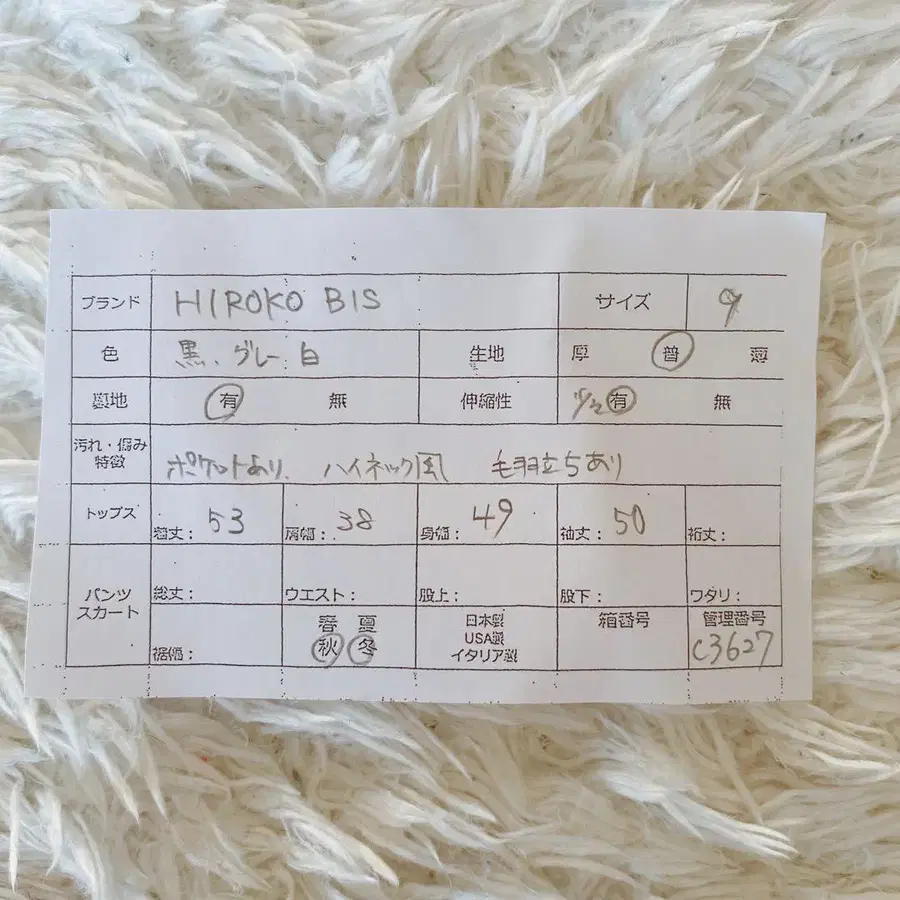 ブランド HIROKO BIS サイズ 9
色 黒、グレー、白 生地 厚 普 薄
裏地 有 無 伸縮性 有 無
汚れ・傷み
特徴 ポケットあり、ハイネック風 毛羽立ちあり
トップス 着丈: 53 肩幅: 38 身幅: 49 袖丈: 50 裄丈:
パンツ
スカート 総丈: ウエスト: 股上: 股下: ワタリ:
裾幅: 春 夏
秋 冬
日本製
USA製
イタリア製
箱番号
管理番号
C3627